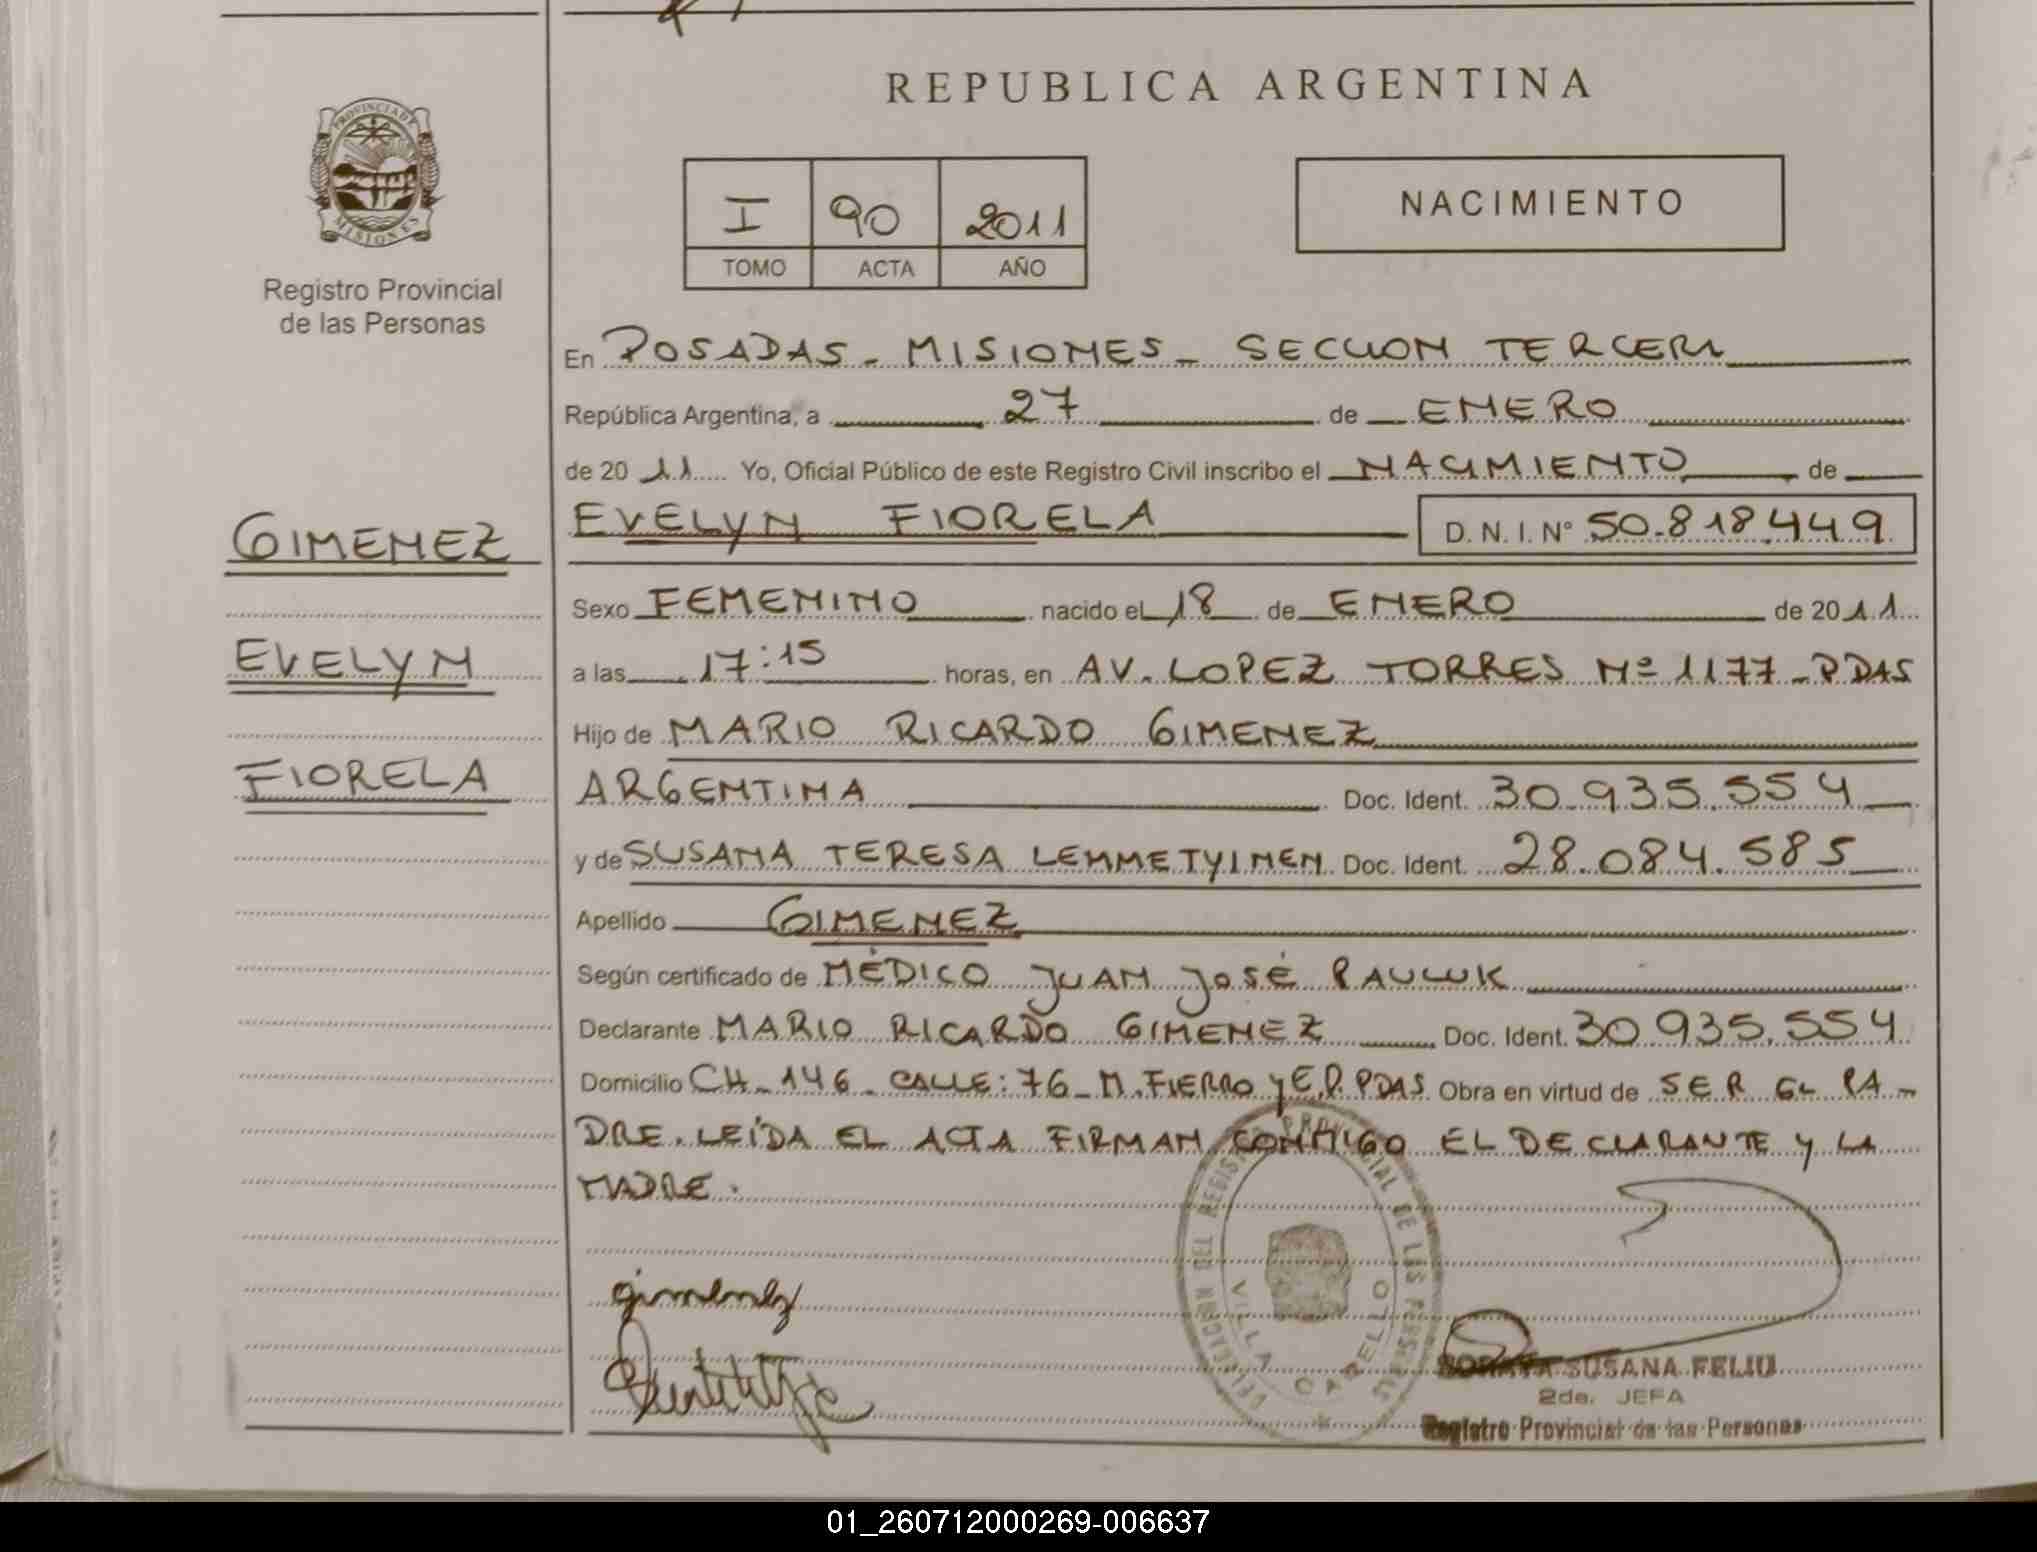 REPUBLICA ARGENTINA
PROVINCIA DE
MISIONES
Registro Provincial
de las Personas
I 90 2011
TOMO ACTA AÑO
NACIMIENTO
En POSADAS - MISIONES - SECCION TERCERA
República Argentina, a 27 de ENERO
de 20 11 Yo, Oficial Público de este Registro Civil inscribo el NACIMIENTO de
EVELYN FIORELA D. N. I. Nº 50.818.449
GIMENEZ
EVELYN
FIORELA
Sexo FEMENINO nacido el 18 de ENERO de 2011
a las 17:15 horas, en AV. LOPEZ TORRES Nº 1177 - PDAS
Hijo de MARIO RICARDO GIMENEZ
ARGENTINA Doc. Ident. 30.935.554
y de SUSANA TERESA LEMMETYINEN Doc. Ident. 28.084.585
Apellido GIMENEZ
Según certificado de MÉDICO JUAN JOSÉ PAULUK
Declarante MARIO RICARDO GIMENEZ Doc. Ident. 30.935.554
Domicilio CH - 146 - CALLE: 76 - M. FIERRO y E.P. PDAS Obra en virtud de SER EL PA-
DRE. LEÍDA EL ACTA FIRMAN CONMIGO EL DECLARANTE Y LA
MADRE.
gimenez
DELEGACION DEL REGISTRO PROVINCIAL DE LAS PERSONAS
VILLA CABELLO
SORAYA SUSANA FELIU
2da. JEFA
Registro Provincial de las Personas
01_260712000269-006637